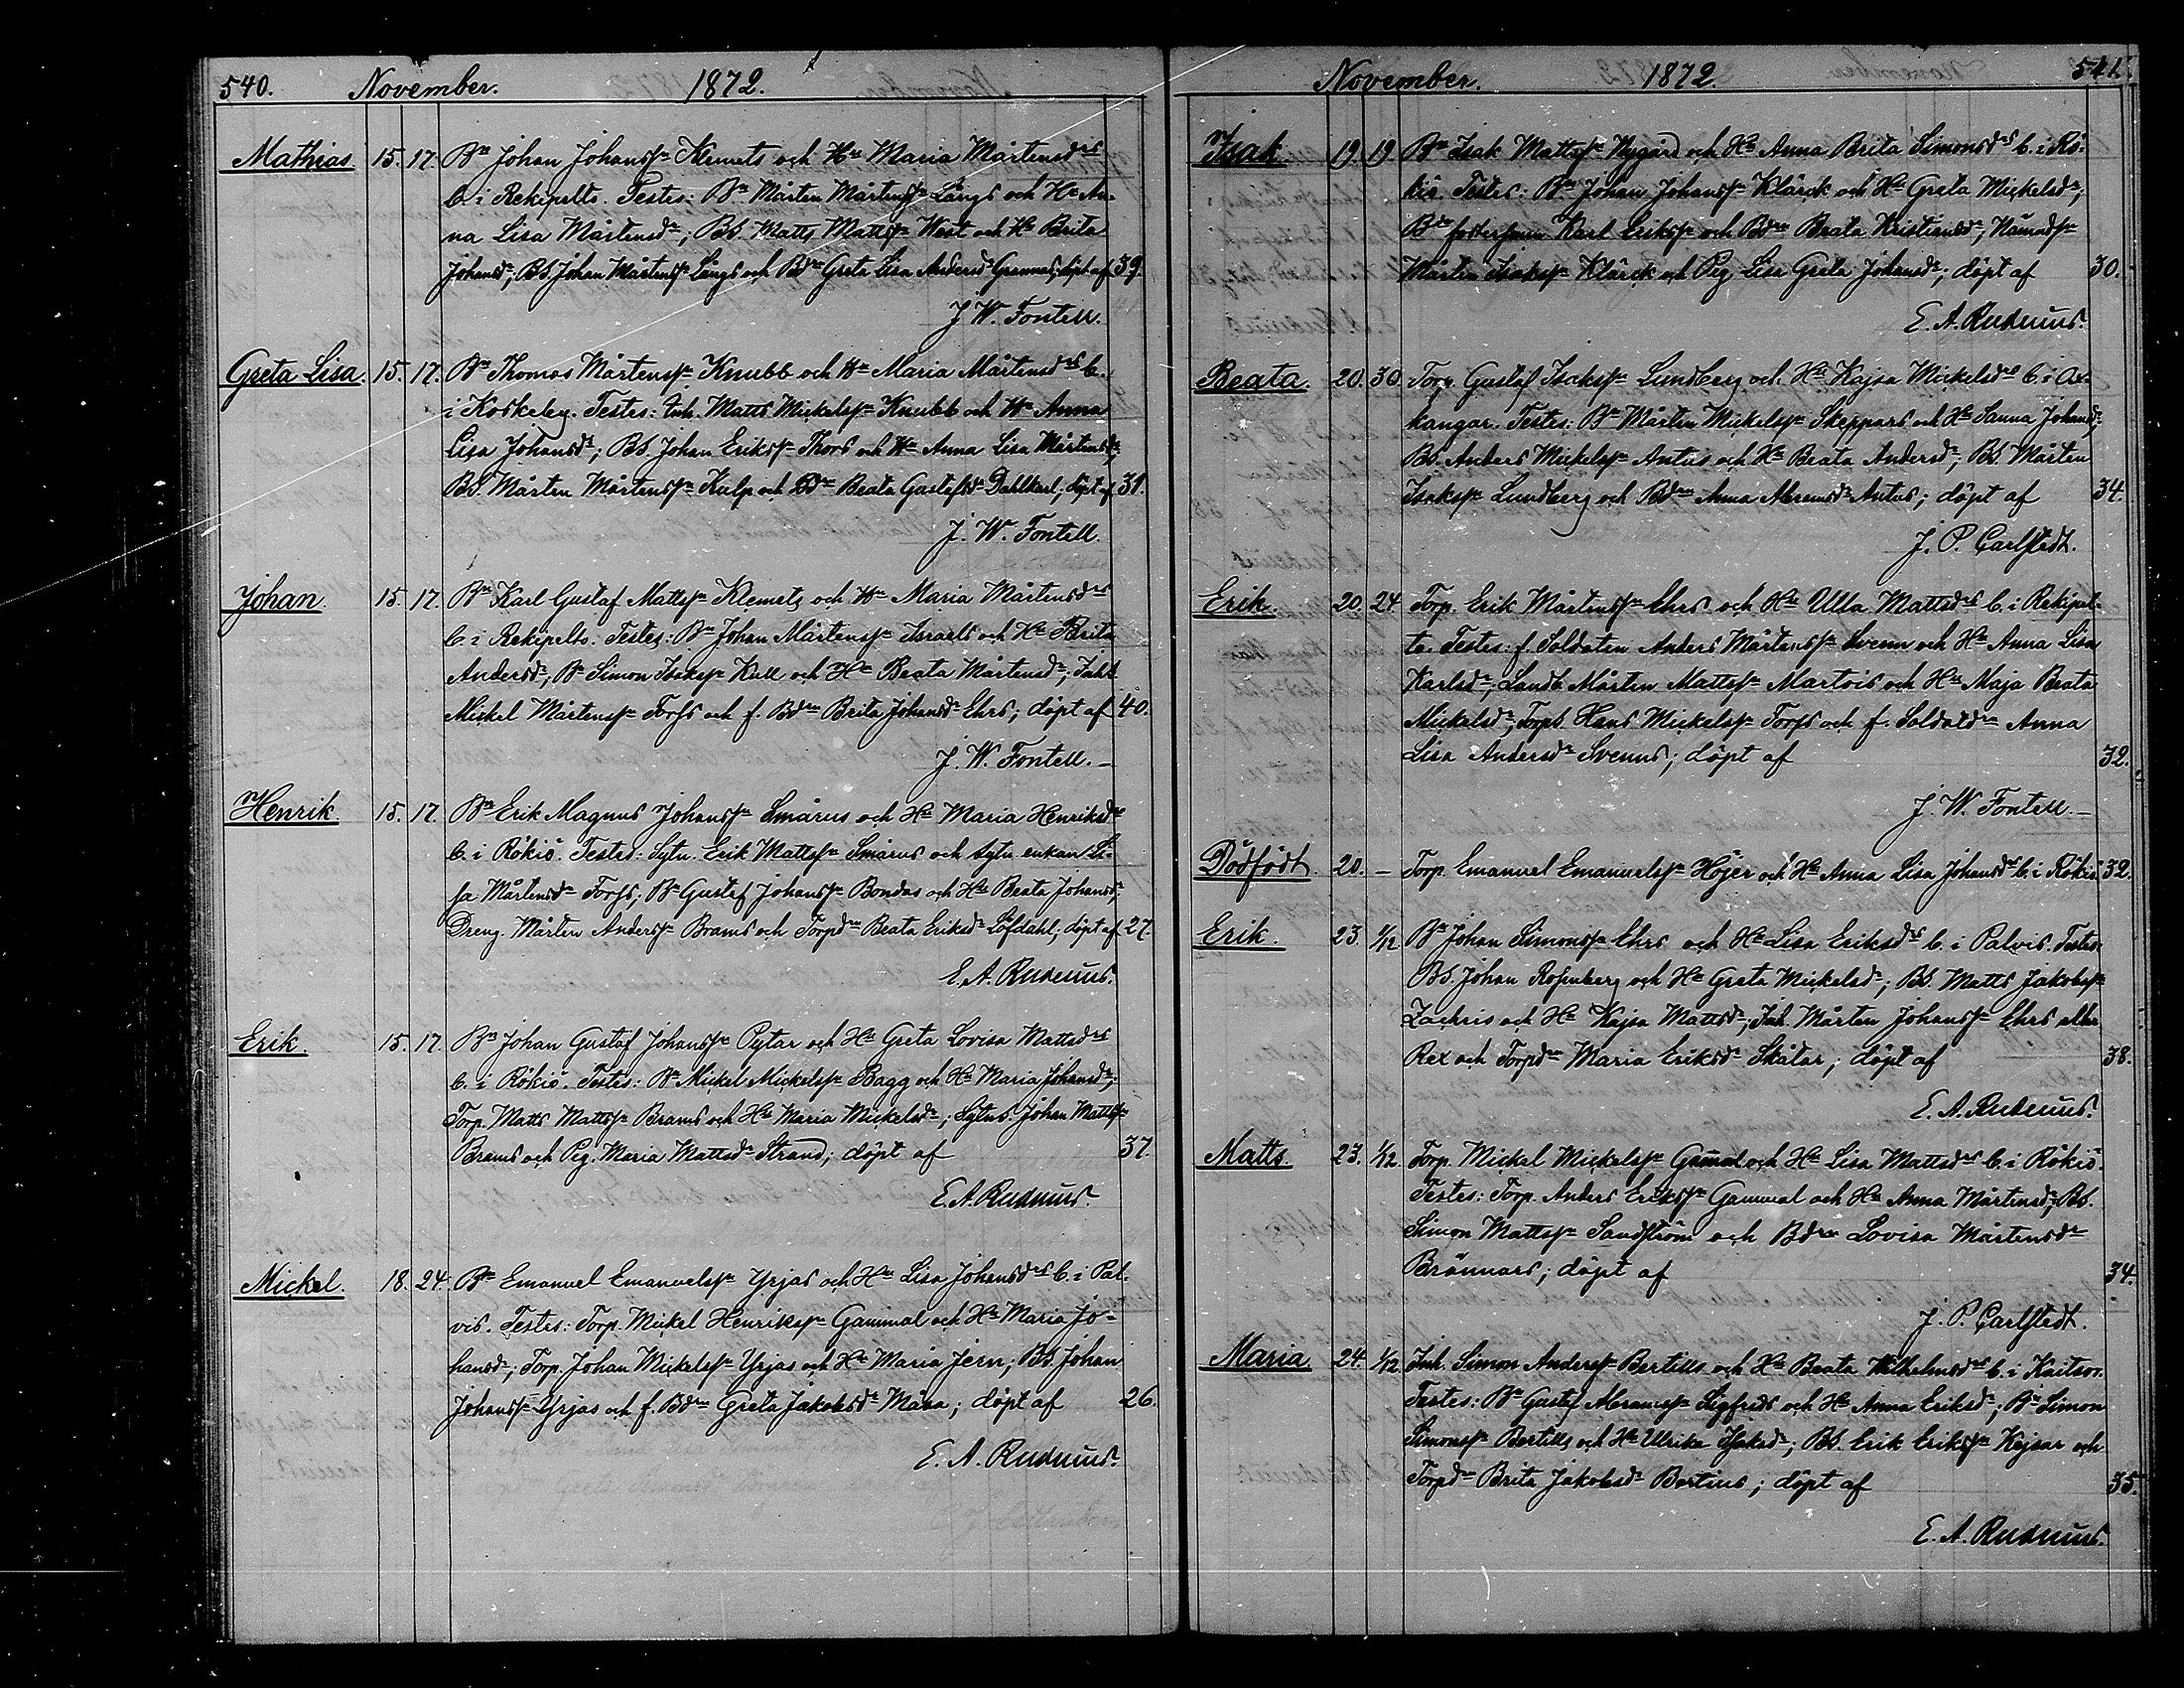 540. November. 1872.
Mathias. 15. 17. Bn Johan Johanssn Klemets och Hu Maria Mårtensdrs
b. i Rekipelto. Testes: Bn Mårten Mårtenssn Långs och Hu An-
na Lisa Mårtensdr; Bs. Matts Mattssn West och Hu Brita
Johansdr; Bs. Johan Mårtenssn Långs och Bdrn Greta Lisa Andersdr Grannas; döpt af 39.
J. W. Fontell.
Greta Lisa. 15. 17. Bn Thomas Mårtenssn Knubb och Hu Maria Mårtensdrs b.
i Koskeby. Testes: Inh. Matts Mickelssn Knubb och Hu Anna
Lisa Johansdr; Bs. Johan Erikssn Thors och Hu Anna Lisa Mårtensdr;
Bs. Mårten Mårtenssn Kulp och Bdrn Beata Gustafsdr Dahlkarl; döpt af 31.
J. W. Fontell.
Johan. 15. 17. Bn Karl Gustaf Mattssn Klemets och Hu Maria Mårtensdrs
b. i Rekipelto. Testes: Bn Johan Mårtenssn Israels och Hu Brita
Andersdr; Bn Simon Isakssn Kull och Hu Beata Mårtensdr; Inh.
Mickel Mårtenssn Torfs och f. Bdrn Brita Johansdr Ehrs; döpt af 40.
J. W. Fontell.—
Henrik. 15. 17. Bn Erik Magnus Johanssn Smårus och Hu Maria Henriksdrs
b. i Rökiö. Testes: Sytn. Erik Mattssn Smårus och sytn enkan Li-
sa Mårtensdr Torfs; Bn Gustaf Johanssn Bondas och Hu Beata Johansdr;
Dreng. Mårten Anderssn Brams och Torpdrn Beata Eriksdr Löfdahl; döpt af 27.
E. A. Rudenius.
Erik. 15. 17. Bn Johan Gustaf Johanssn Pytar och Hu Greta Lovisa Mattsdrs
b. i Rökiö. Testes: Bn Mickel Mickelssn Bagg och Hu Maria Johansdr;
Torp. Matts Mattssn Brams och Hu Maria Mickelsdr; Sytns. Johan Mattssn
Brams och Pig. Maria Mattsdr Strand; döpt af 37.
E. A. Rudenius.
Mickel. 18. 24. Bn Emanuel Emanuelssn Yrjas och Hu Lisa Johansdrs b. i Pal-
vis. Testes: Torp. Mickel Henrikssn Gammal och Hu Maria Jo-
hansdr; Torp. Johan Mickelssn Yrjas och Hu Maria Jern; Bs. Johan
Johanssn Yrjas och f. Bdrn Greta Jakobsdr Måsa; döpt af 26.
E. A. Rudenius.
November. 1872. 541.
Isak 19 19 Bn Isak Mattssn Nygård och Hu Anna Brita Simonsdrs b. i Rö-
kiö. Testes: Bn Johan Johanssn Klärck och Hu Greta Mickelsdr;
Bdns fosterson Karl Erikssn och Bdrn Beata Kristiansdr; Nämndsn
Mårten Isakssn Klärck och Pig Lisa Greta Johansdr; döpt af 30.
E. A. Rudenius.
Beata. 20. 30. Torp. Gustaf Isakssn Lundberg och Hu Kajsa Mickelsdrs b. i Ox-
kangar. Testes: Bn Mårten Mickelssn Skeppars och Hu Sanna Johansdr;
Bs. Anders Mickelssn Antus och Hu Beata Andersdr; Bs. Mårten
Isakssn Lundberg och Bdrn Anna Abramsdr Antus; döpt af 34.
J. P. Carlstedt.
Erik. 20. 24. Torp. Erik Mårtenssn Ehrs och Hu Ulla Mattsdrs b. i Rekipel-
to. Testes: f. Soldaten Anders Mårtenssn Svenn och Hu Anna Lisa
Karlsdr; Landb. Mårten Mattssn Martois och Hu Maja Beata
Mickelsdr; Torps. Hans Mickelssn Torfs och f. Soldatdrn Anna
Lisa Andersdr Svenns; döpt af 32.
J. W. Fontell.—
Dödfödt. 20. — Torp. Emanuel Emanuelssn Höjer och Hu Anna Lisa Johansdrs b. i Rökiö. 32.
Erik. 23. 1/12 Bn Johan Simonssn Ehrs och Hu Lisa Eriksdrs b. i Palvis. Testes:
Bs. Johan Rosenberg och Hu Greta Mickelsdr; Bs. Matts Jakobssn
Zachris och Hu Kajsa Mattsdr; Inh. Mårten Johanssn Ehrs eller
Rex och Torpdrn Maria Eriksdr Skåtar; döpt af 38.
E. A. Rudenius.
Matts. 23. 1/12. Torp. Mickel Mickelssn Gammal och Hu Lisa Mattsdrs b. i Rökiö.
Testes: Torp. Anders Erikssn Gammal och Hu Anna Mårtensdr; Bs.
Simon Mattssn Sandström och Bdrn Lovisa Mårtensdr
Brännars; döpt af 34.
J. P. Carlstedt.
Maria. 24. 1/12. Inh. Simon Anderssn Bertills och Hu Beata Wilhelmsdrs b. i Kaitsor.
Testes: Bn Gustaf Abramssn Sigfrids och Hu Anna Eriksdr; Bn Simon
Simonssn Bertills och Hu Ulrika Isaksdr; Bs. Erik Erikssn Kejsar och
Torpdrn Brita Jakobsdr Bertius; döpt af 35.
E. A. Rudenius.